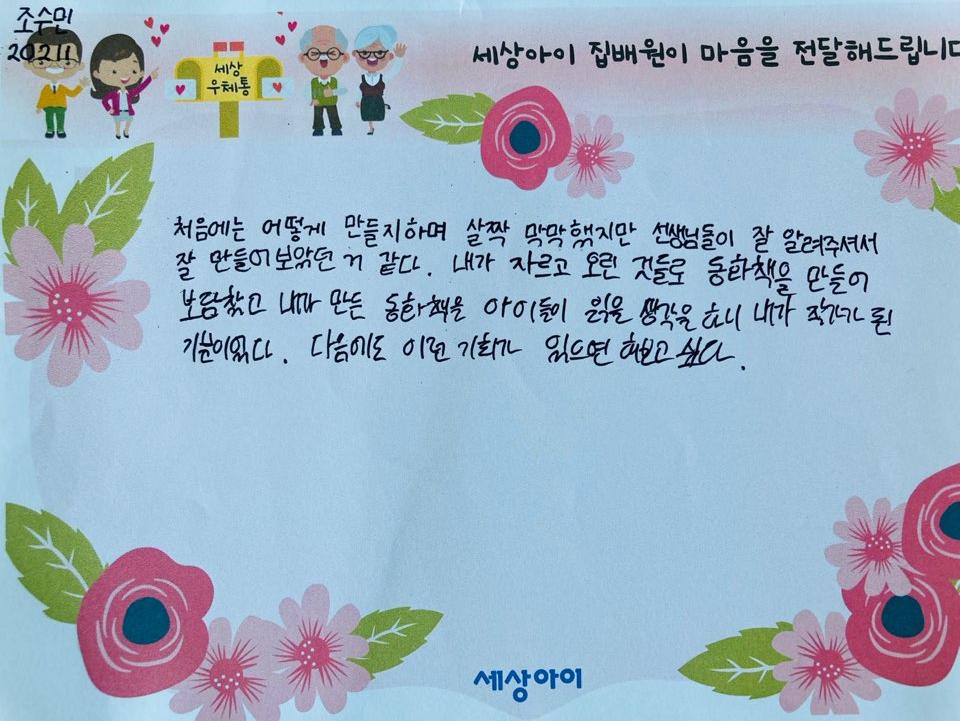 조수민
20211
세상아이 집배원이 마음을 전달해드립니다
세상
우체통
처음에는 어떻게 만들지하며 살짝 막막했지만 선생님들이 잘 알려주셔서
잘 만들어보았던 거 같다. 내가 자르고 오린 것들로 동화책을 만들어
보람찼고 내가 만든 동화책을 아이들이 읽을 생각을 하니 내가 작가가 된
기분이였다. 다음에도 이런 기회가 있으면 해보고 싶다.
세상아이